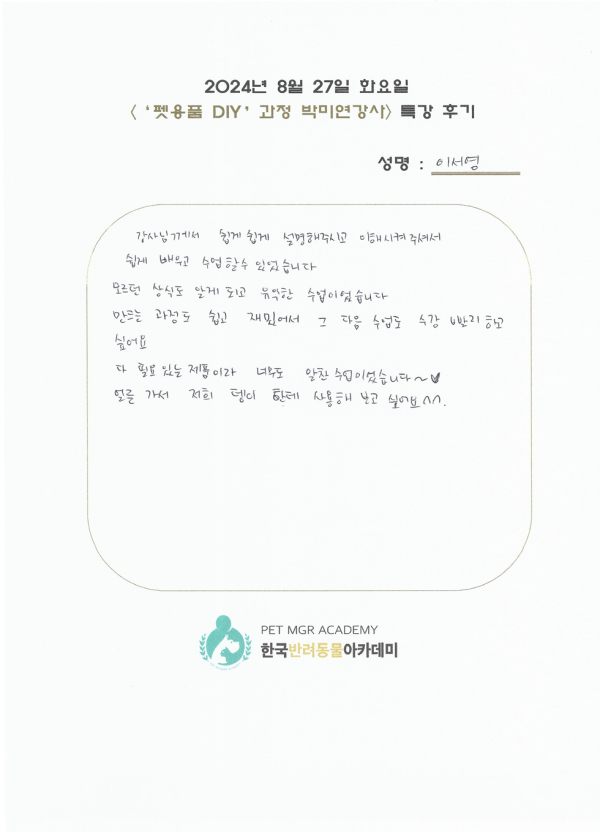 2024년 8월 27일 화요일
〈 '펫용품 DIY' 과정 박미연강사〉 특강 후기
성명 : 이서영
강사님께서 쉽게쉽게 설명해주시고 이해시켜주셔서
쉽게 배우고 수업할수 있었습니다
모르던 상식도 알게 되고 유익한 수업이었습니다
만드는 과정도 쉽고 재밌어서 그 다음 수업도 수강 빨리 하고
싶어요
다 필요있는 제품이라 너무도 알찬 수업이었습니다~♥
얼른 가서 저희 댕이 한테 사용해 보고 싶어요^^.
PET MGR ACADEMY
한국반려동물아카데미